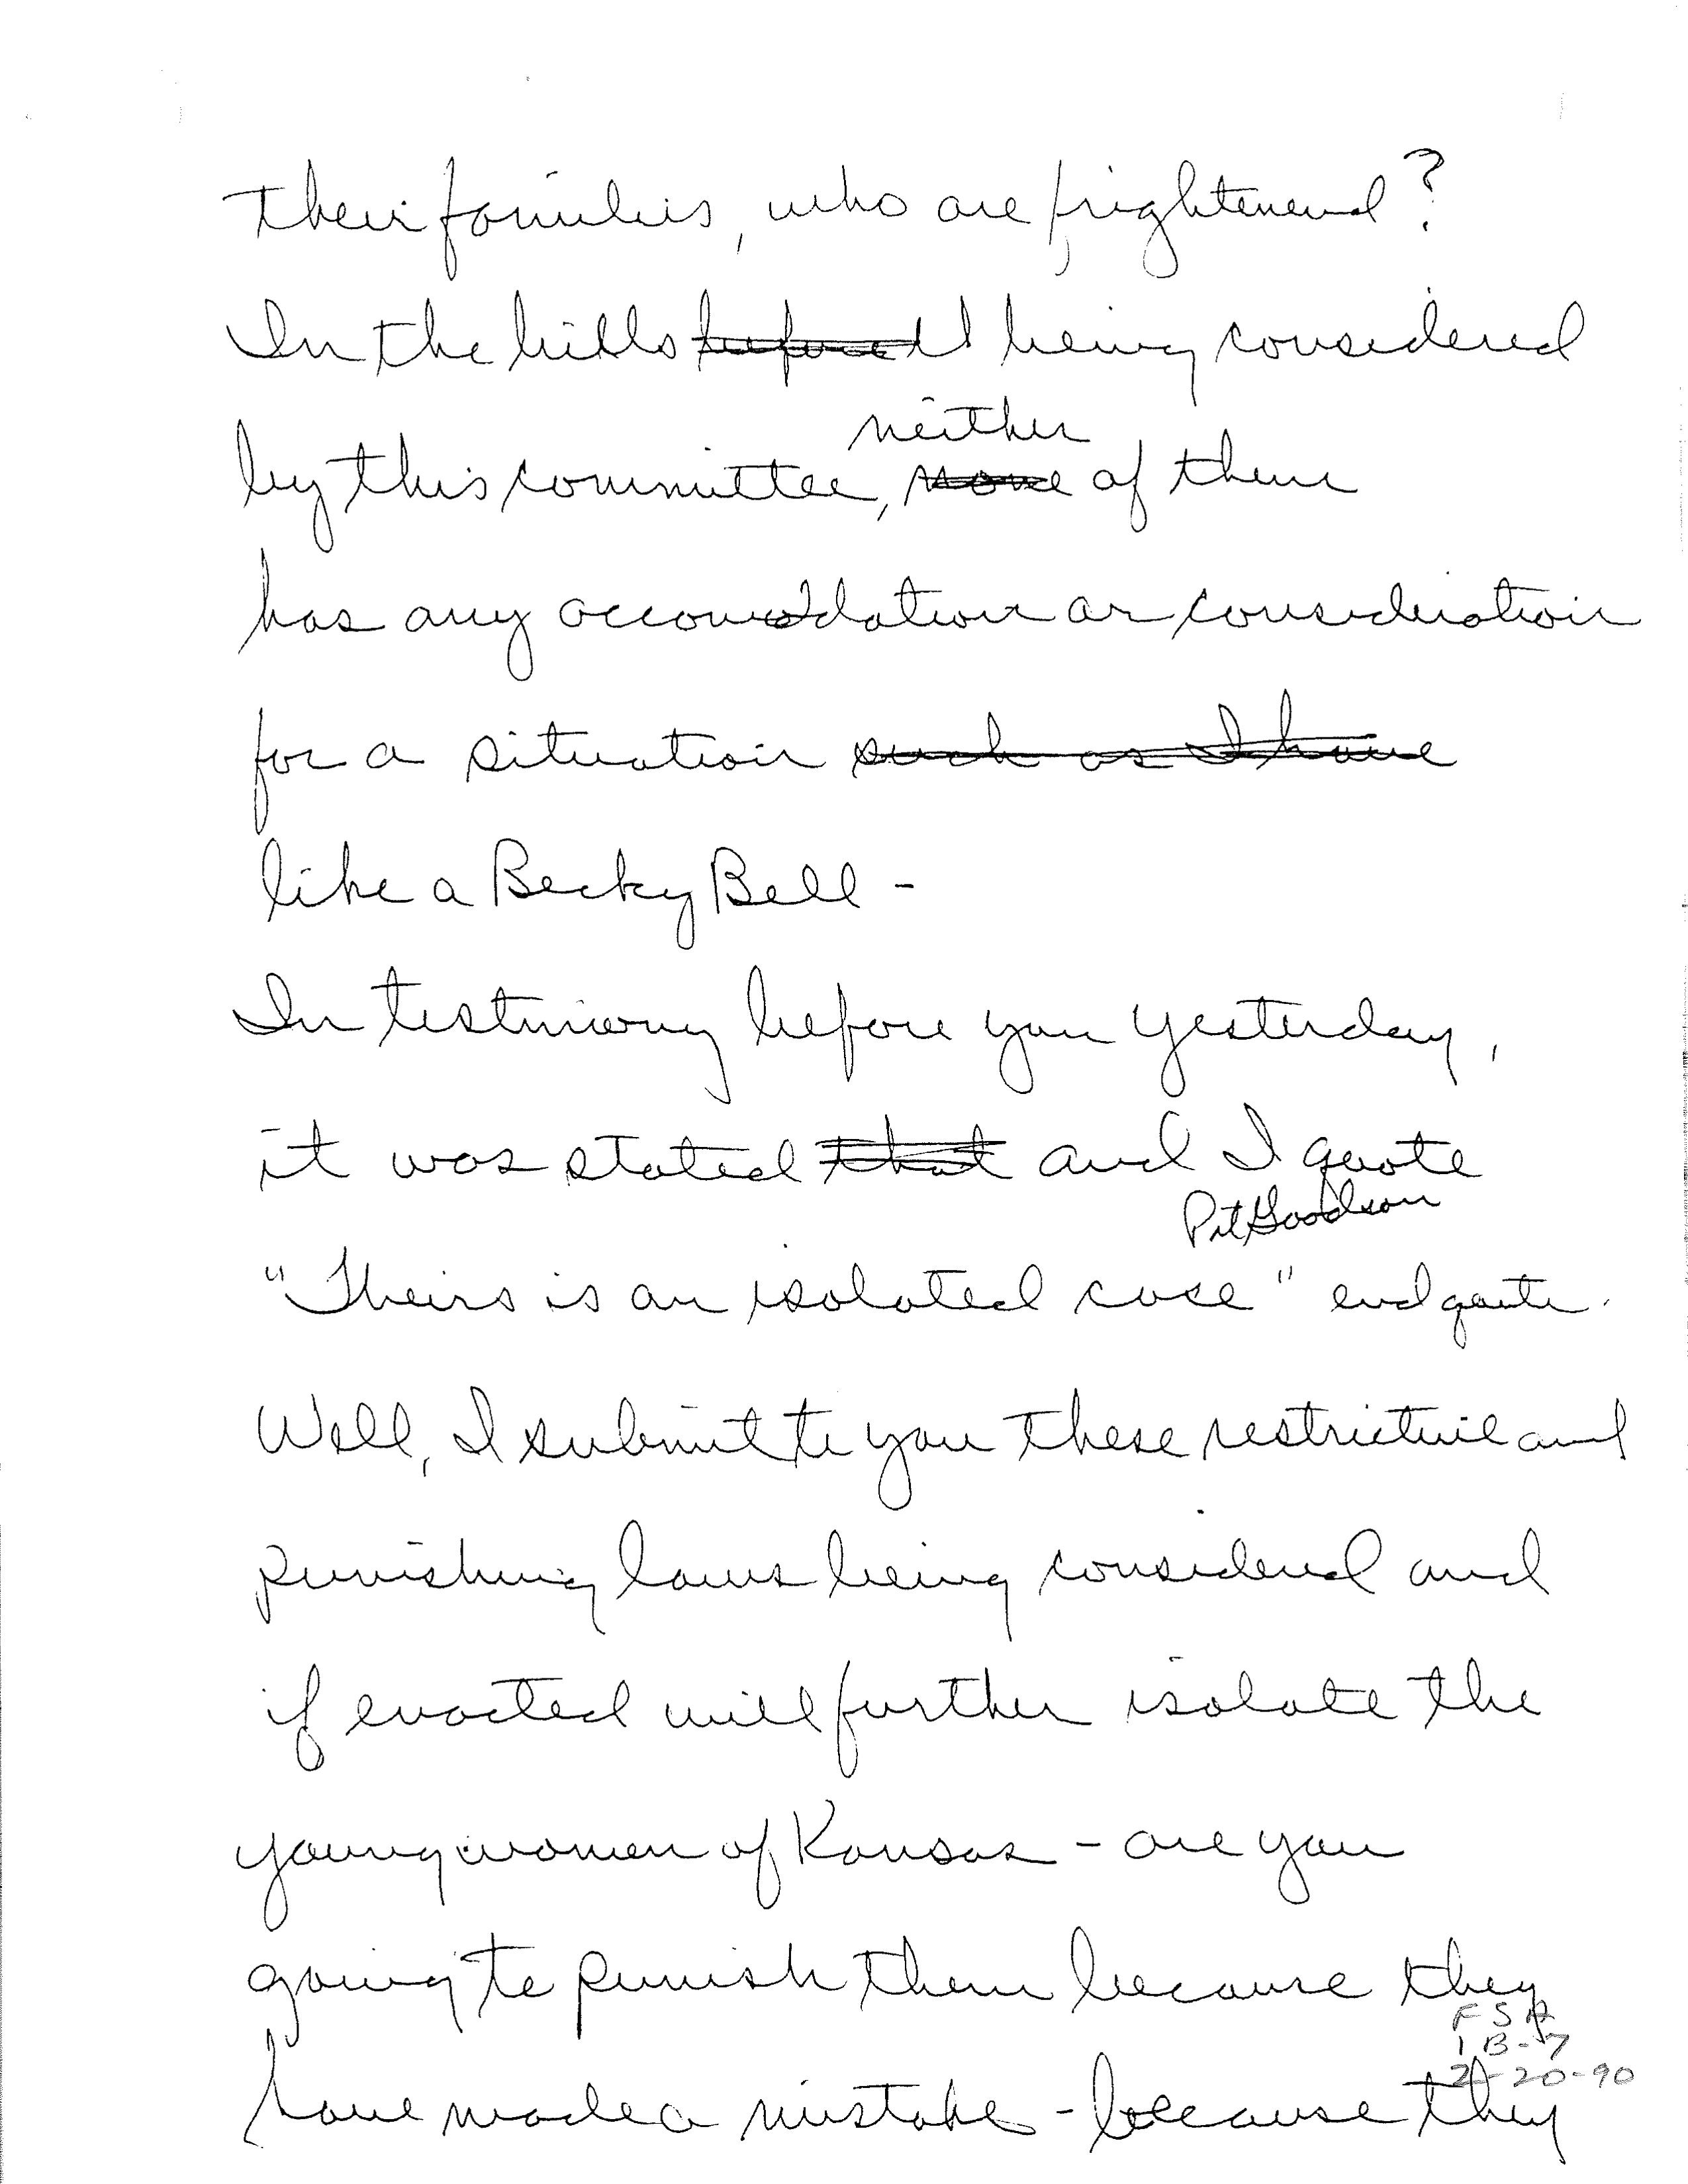 their families, who are frightened?
In the bills before I being considered
neither
by this committee, none of them
has any accomodation or consideration
for a situation such as I have
like a Becky Bell -
In testimony before you yesterday,
it was stated that and I quote
Pat Goodson
"Theirs is an isolated case" end quote.
Well, I submit to you these restrictive and
punishing laws being considered and
if enacted will further isolate the
young women of Kansas - are you
going to punish them because they
FSA
1B-7
2-20-90
have made a mistake - because they